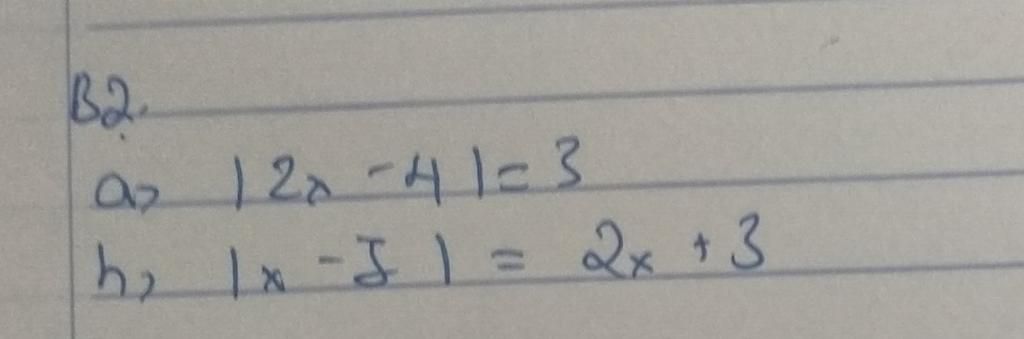 B2.
a, |2x - 4| = 3
b, |x - 5| = 2x + 3